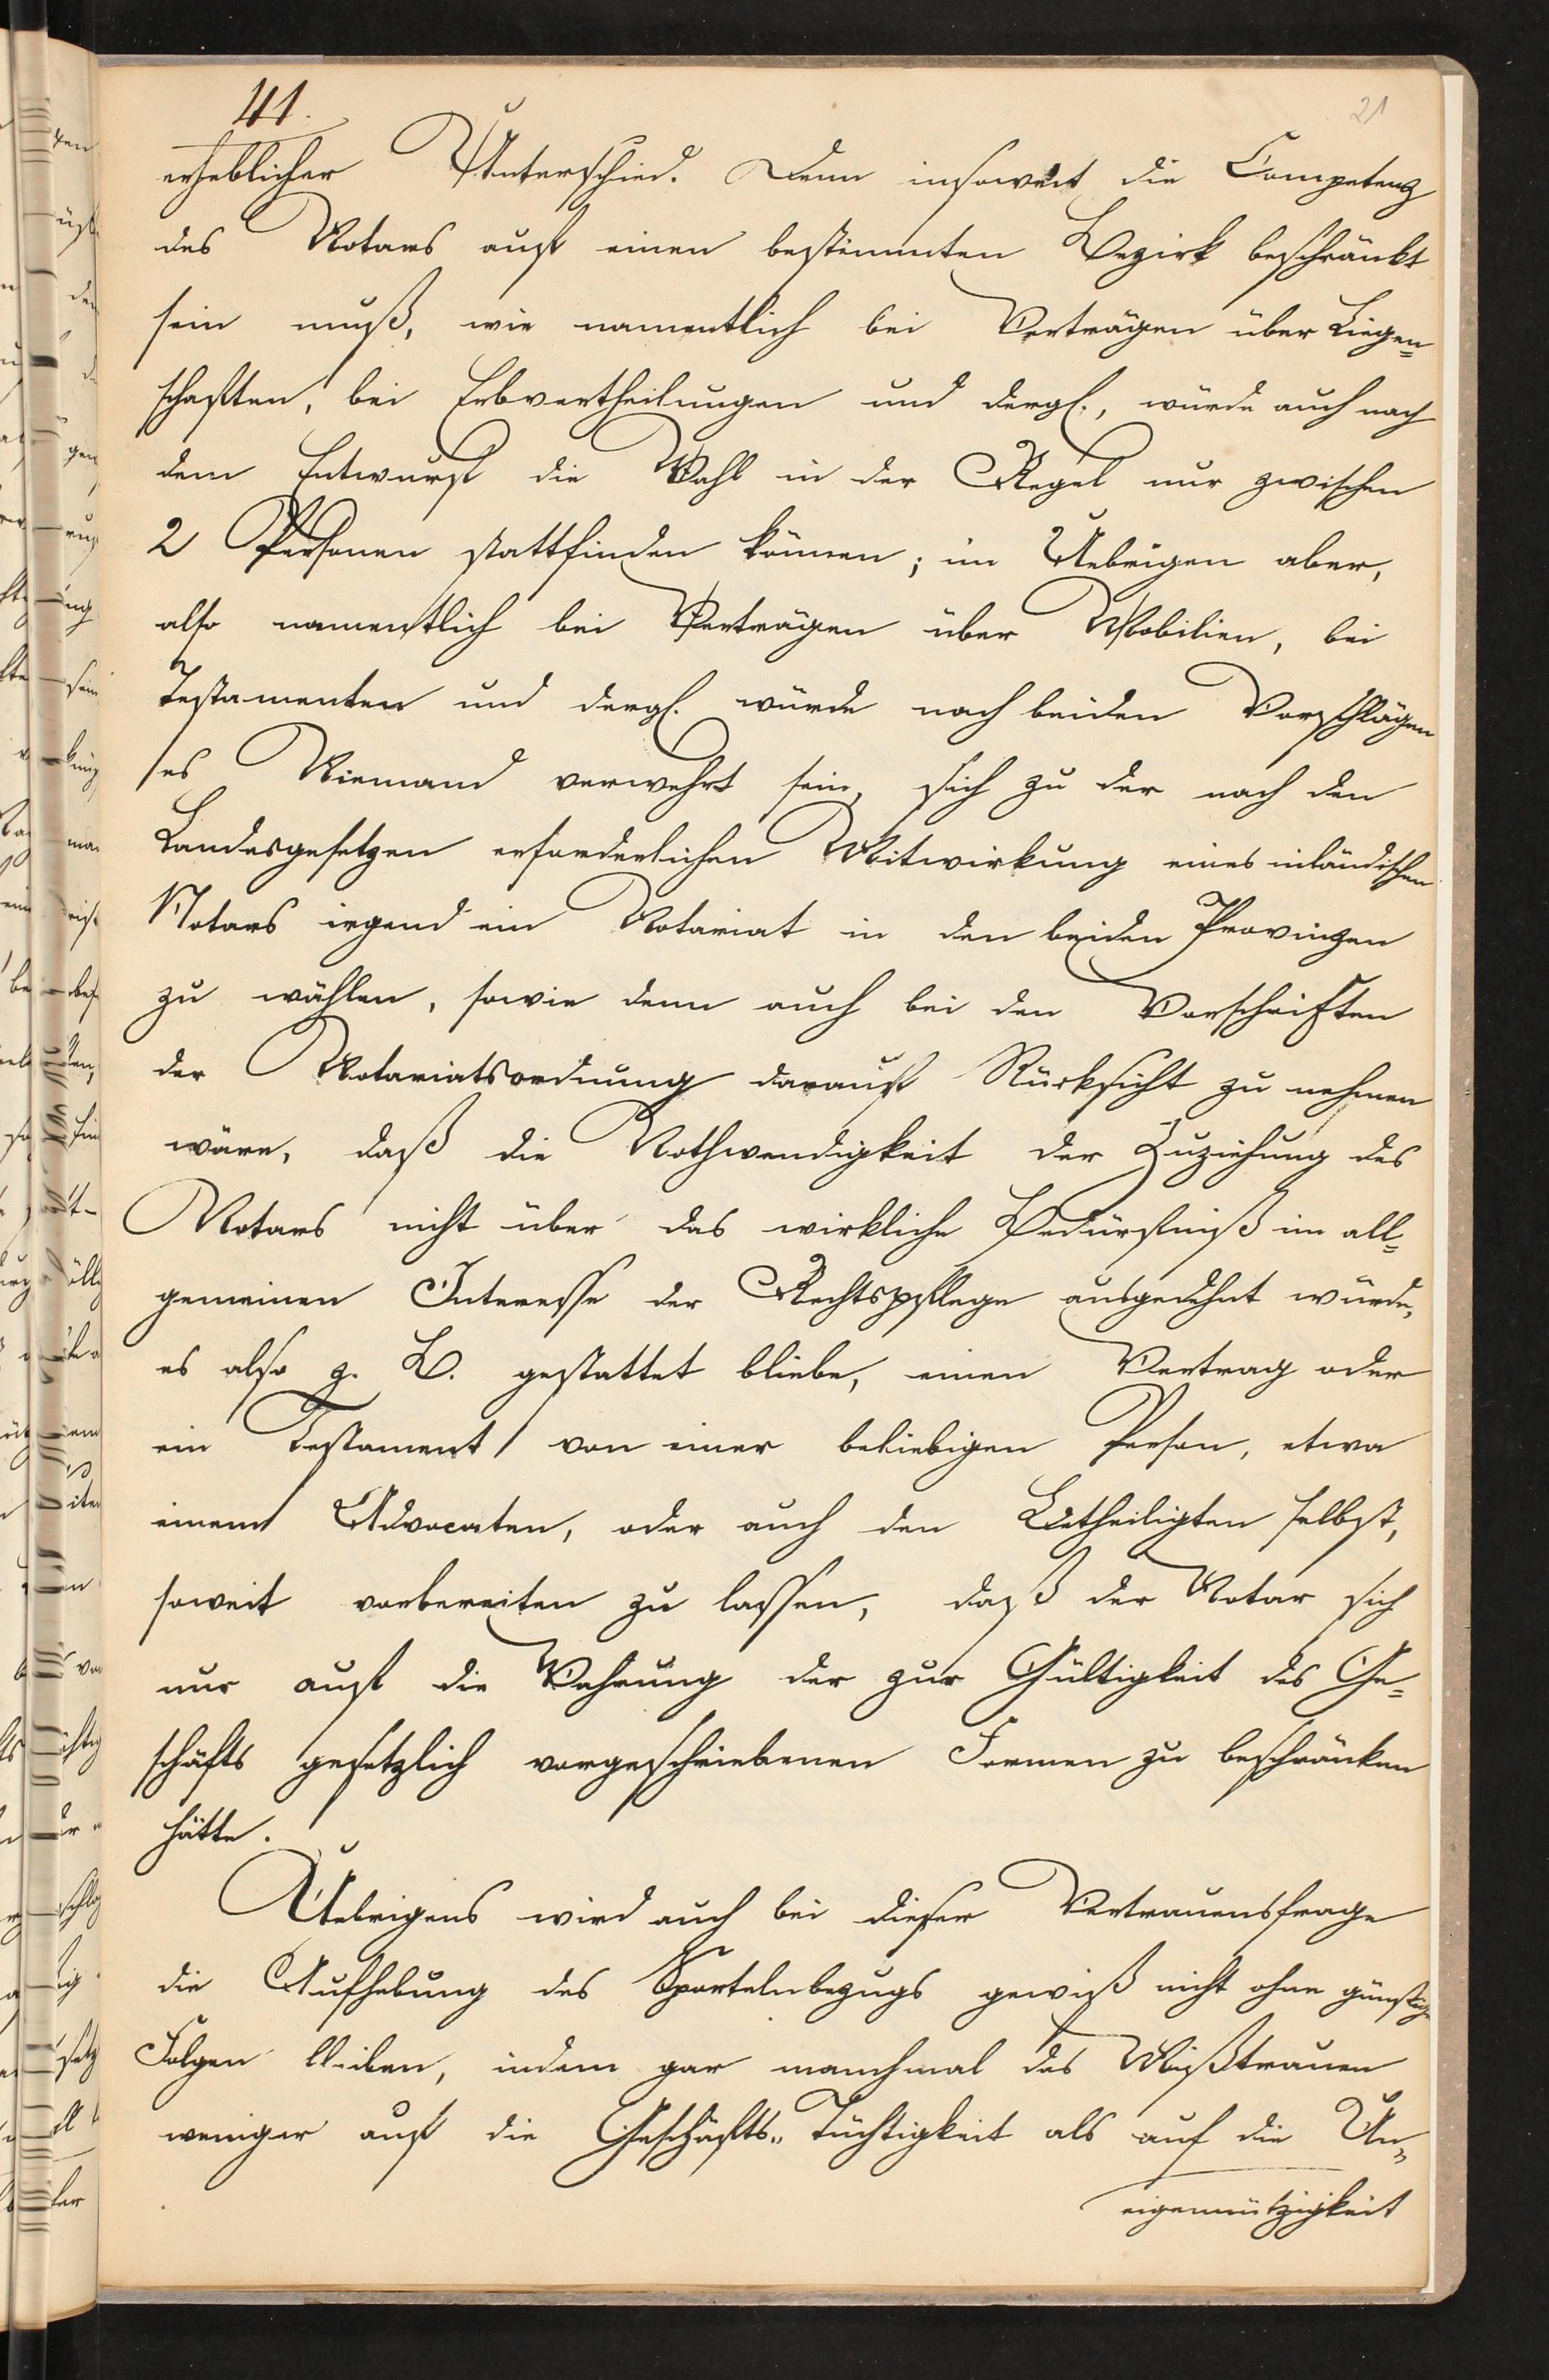 41.
21
erheblicher Unterschied. Denn insoweit die Competenz
des Notars auf einen bestimmten Bezirk beschränkt
sein muß, wie namentlich bei Verträgen über Liegen=
schaften, bei Erbvertheilungen und dergl., würde auch nach
dem Entwurf die Wahl in der Regel nur zwischen
2 Personen stattfinden können; im Uebrigen aber,
also namentlich bei Verträgen über Mobilien, bei
Testamenten und dergl. würde nach beiden Vorschlägen
es Niemand verwehrt sein, sich zu der nach den
Landesgesetzen erforderlichen Mitwirkung eines inländischen
Notars irgend ein Notariat in den beiden Provinzen
zu wählen, sowie denn auch bei den Vorschriften
der Notariatsordnung darauf Rücksicht zu nehmen
wäre, daß die Nothwendigkeit der Zuziehung des
Notars nicht über das wirkliche Bedürfniß im all=
gemeinen Interesse der Rechtspflege ausgedehnt würde,
es also z. B. gestattet bliebe, einen Vertrag oder
ein Testament von einer beliebigen Person, etwa
einem Advocaten, oder auch den Betheiligten selbst,
soweit vorbereiten zu lassen, daß der Notar sich
nur auf die Wahrung der zur Gültigkeit des Ge=
schäfts gesetzlich vorgeschriebenen Formen zu beschränken
hätte.
Uebrigens wird auch bei dieser Vertrauensfrage
die Aufhebung des Sportelnbezugs gewiß nicht ohne günstige
Folgen bleiben, indem gar manchmal das Mißtrauen
weniger auf die Geschäfts=Tüchtigkeit als auf die Un=
eigennützigkeit